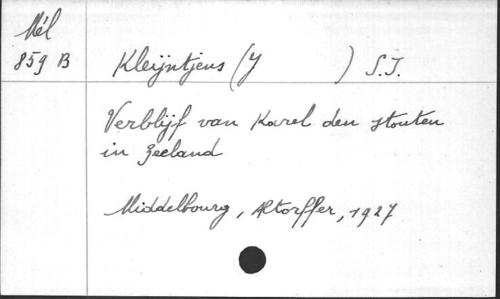 Mél
859 B
Kleijntjens (J ) S.J.
Verblijf van Karel den stouten
in Zeeland
Middelbourg, Altorffer, 1927